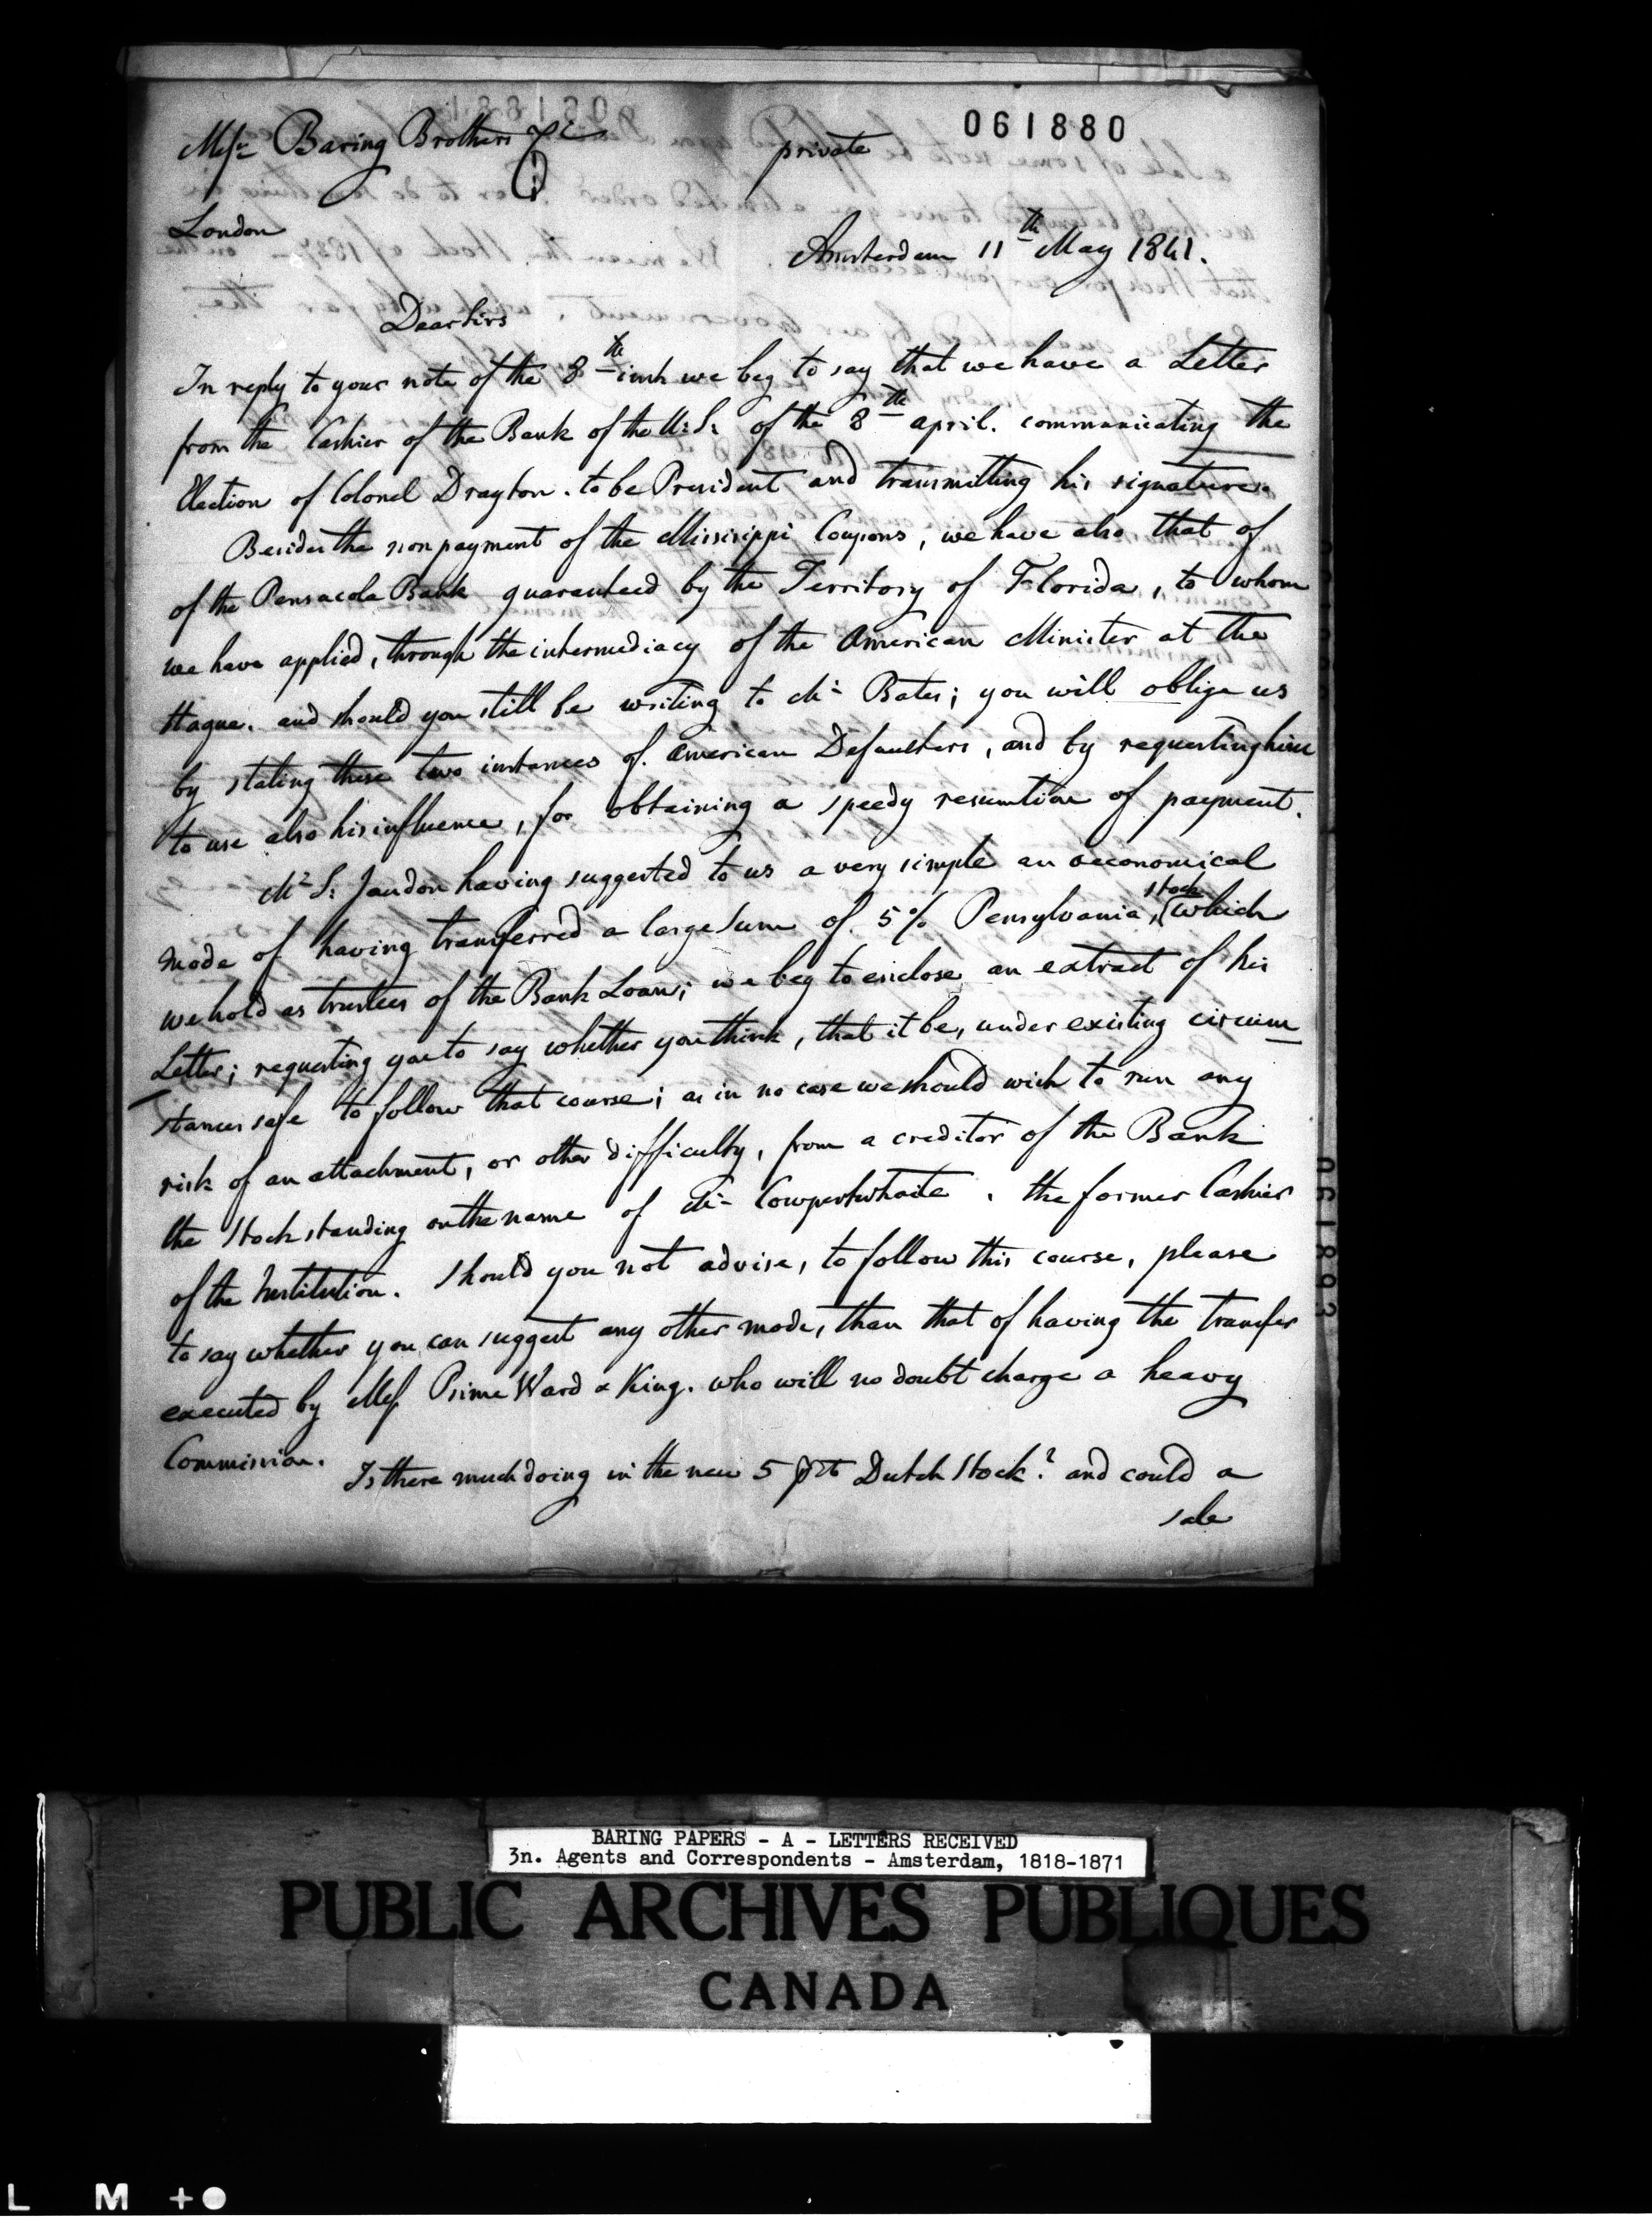 061880
Messrs Baring Brothers & Co
private
London
Amsterdam 11th May 1841.
Dear Sirs
In reply to your note of the 8th inst we beg to say that we have a Letter
from the Cashier of the Bank of the U: S: of the 8th april. communicating the
Election of Colonel Drayton. to be President and transmitting his signature.
Besides the non payment of the Missisippi Coupons, we have also that of
of the Pensacola Bank guaranteed by the Territory of Florida, to whom
we have applied, through the intermediacy of the American Minister at the
Hague. and should you still be writing to Mr Bates; you will oblige us
by stating these two instances of American Defaulters, and by requesting him
to use also his influence, for obtaining a speedy resumtion of payment.
Mr S: Jaudon having suggested to us a very simple an oeconomical
mode of having transferred a large Sum of 5% Pensylvania, stock which
we hold as trustees of the Bank Loan; we beg to enclose an extract of his
Letter; requesting you to say whether you think, that it be, under existing circum
stances safe to follow that course; as in no case we should wish to run any
risk of an attachment, or other difficulty, from a creditor of the Bank
the Stock standing on the name of Mr Cowperthwaite. the former Cashier
of the Institution. Should you not advise, to follow this course, please
to say whether you can suggest any other mode, than that of having the transfer
executed by Mess Prime Ward & King. who will no doubt charge a heavy
Commission.
Is there much doing in the new 5 pCt Dutch Stock? and could a
sale
061893
BARING PAPERS - A - LETTERS RECEIVED
3n. Agents and Correspondents - Amsterdam, 1818-1871
PUBLIC ARCHIVES PUBLIQUES
CANADA
L M +